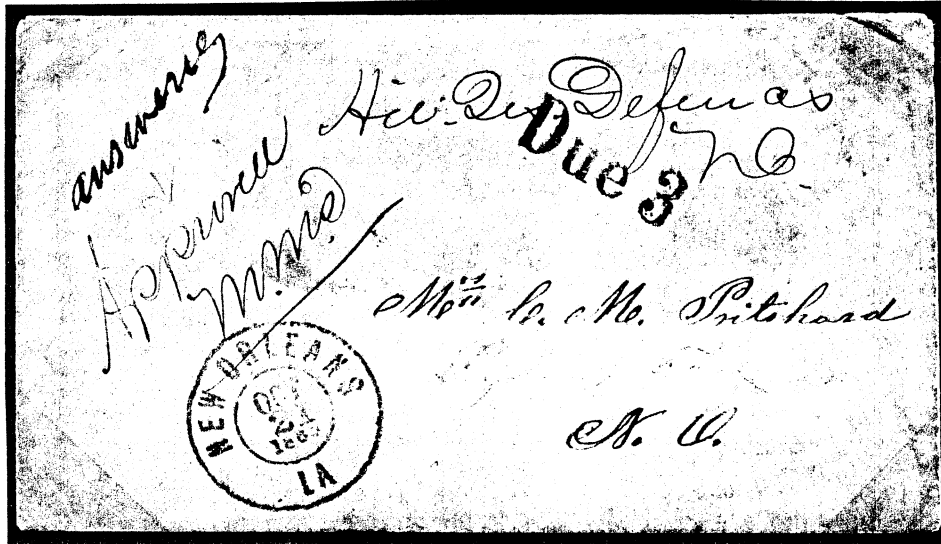 answered
Approved
M.M.D
Defences
N.O.
Due 3
Mrs C. M. Pritchard
N. O.
NEW ORLEANS
LA